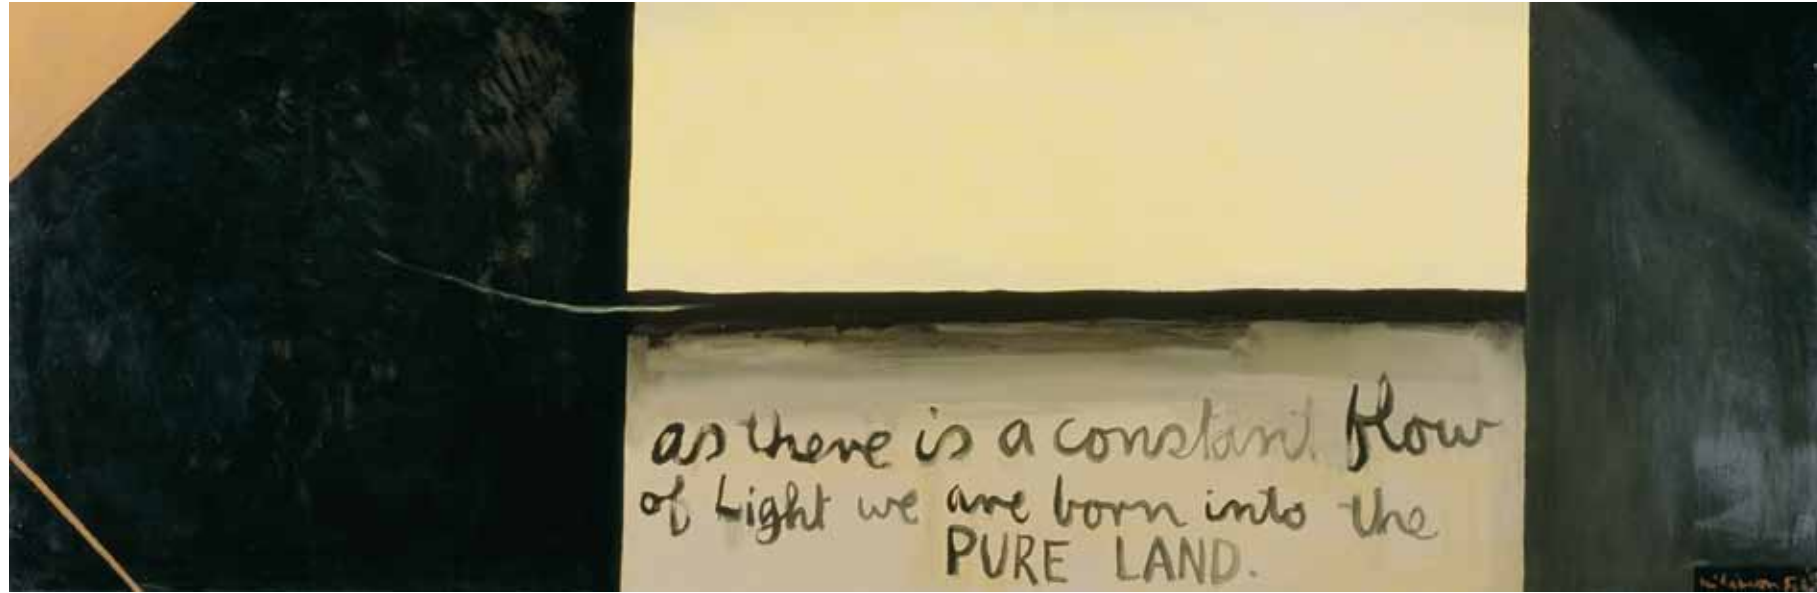 as there is a constant flow
of Light we are born into the
PURE LAND.